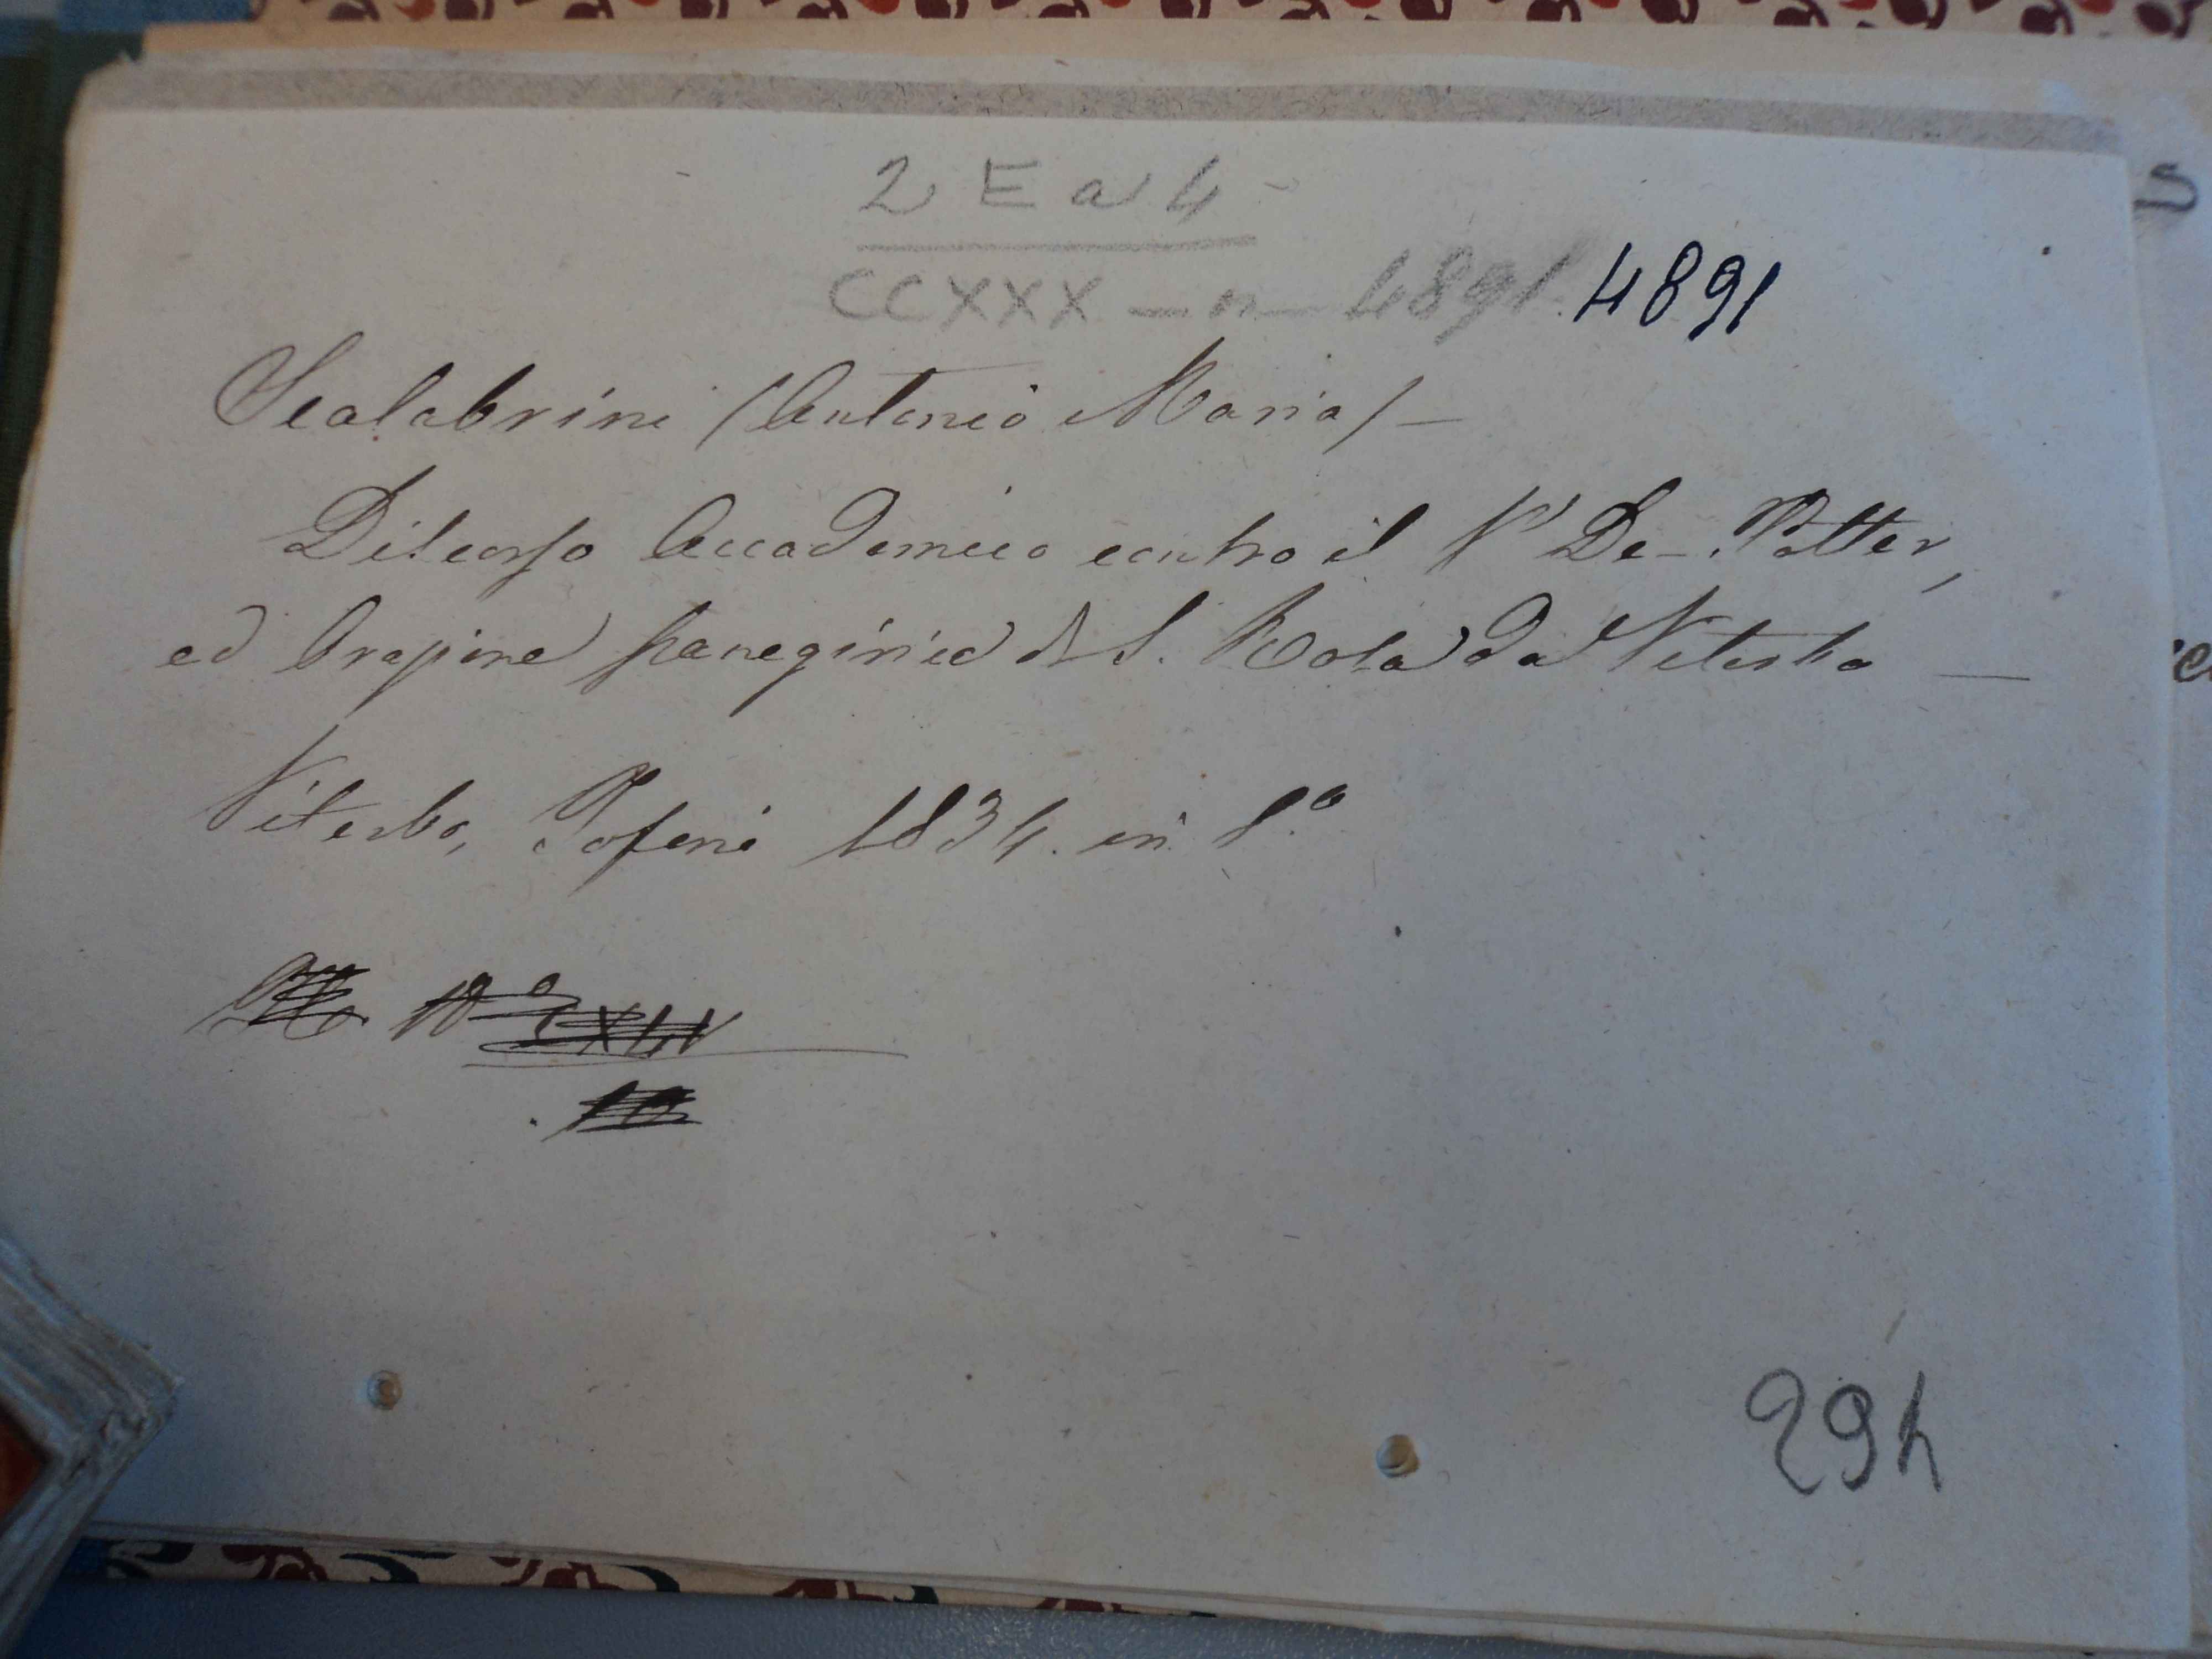 2 E a 4
CCXXX - n - 4891. 4891
Scalabrini (Antonio Maria) -
Discorso Accademico contro il Sr De-Potter,
ed Orazione panegirica di S. Rosa da Viterbo -
Viterbo, Poleni 1834. in 8.o
XLIV
10
294